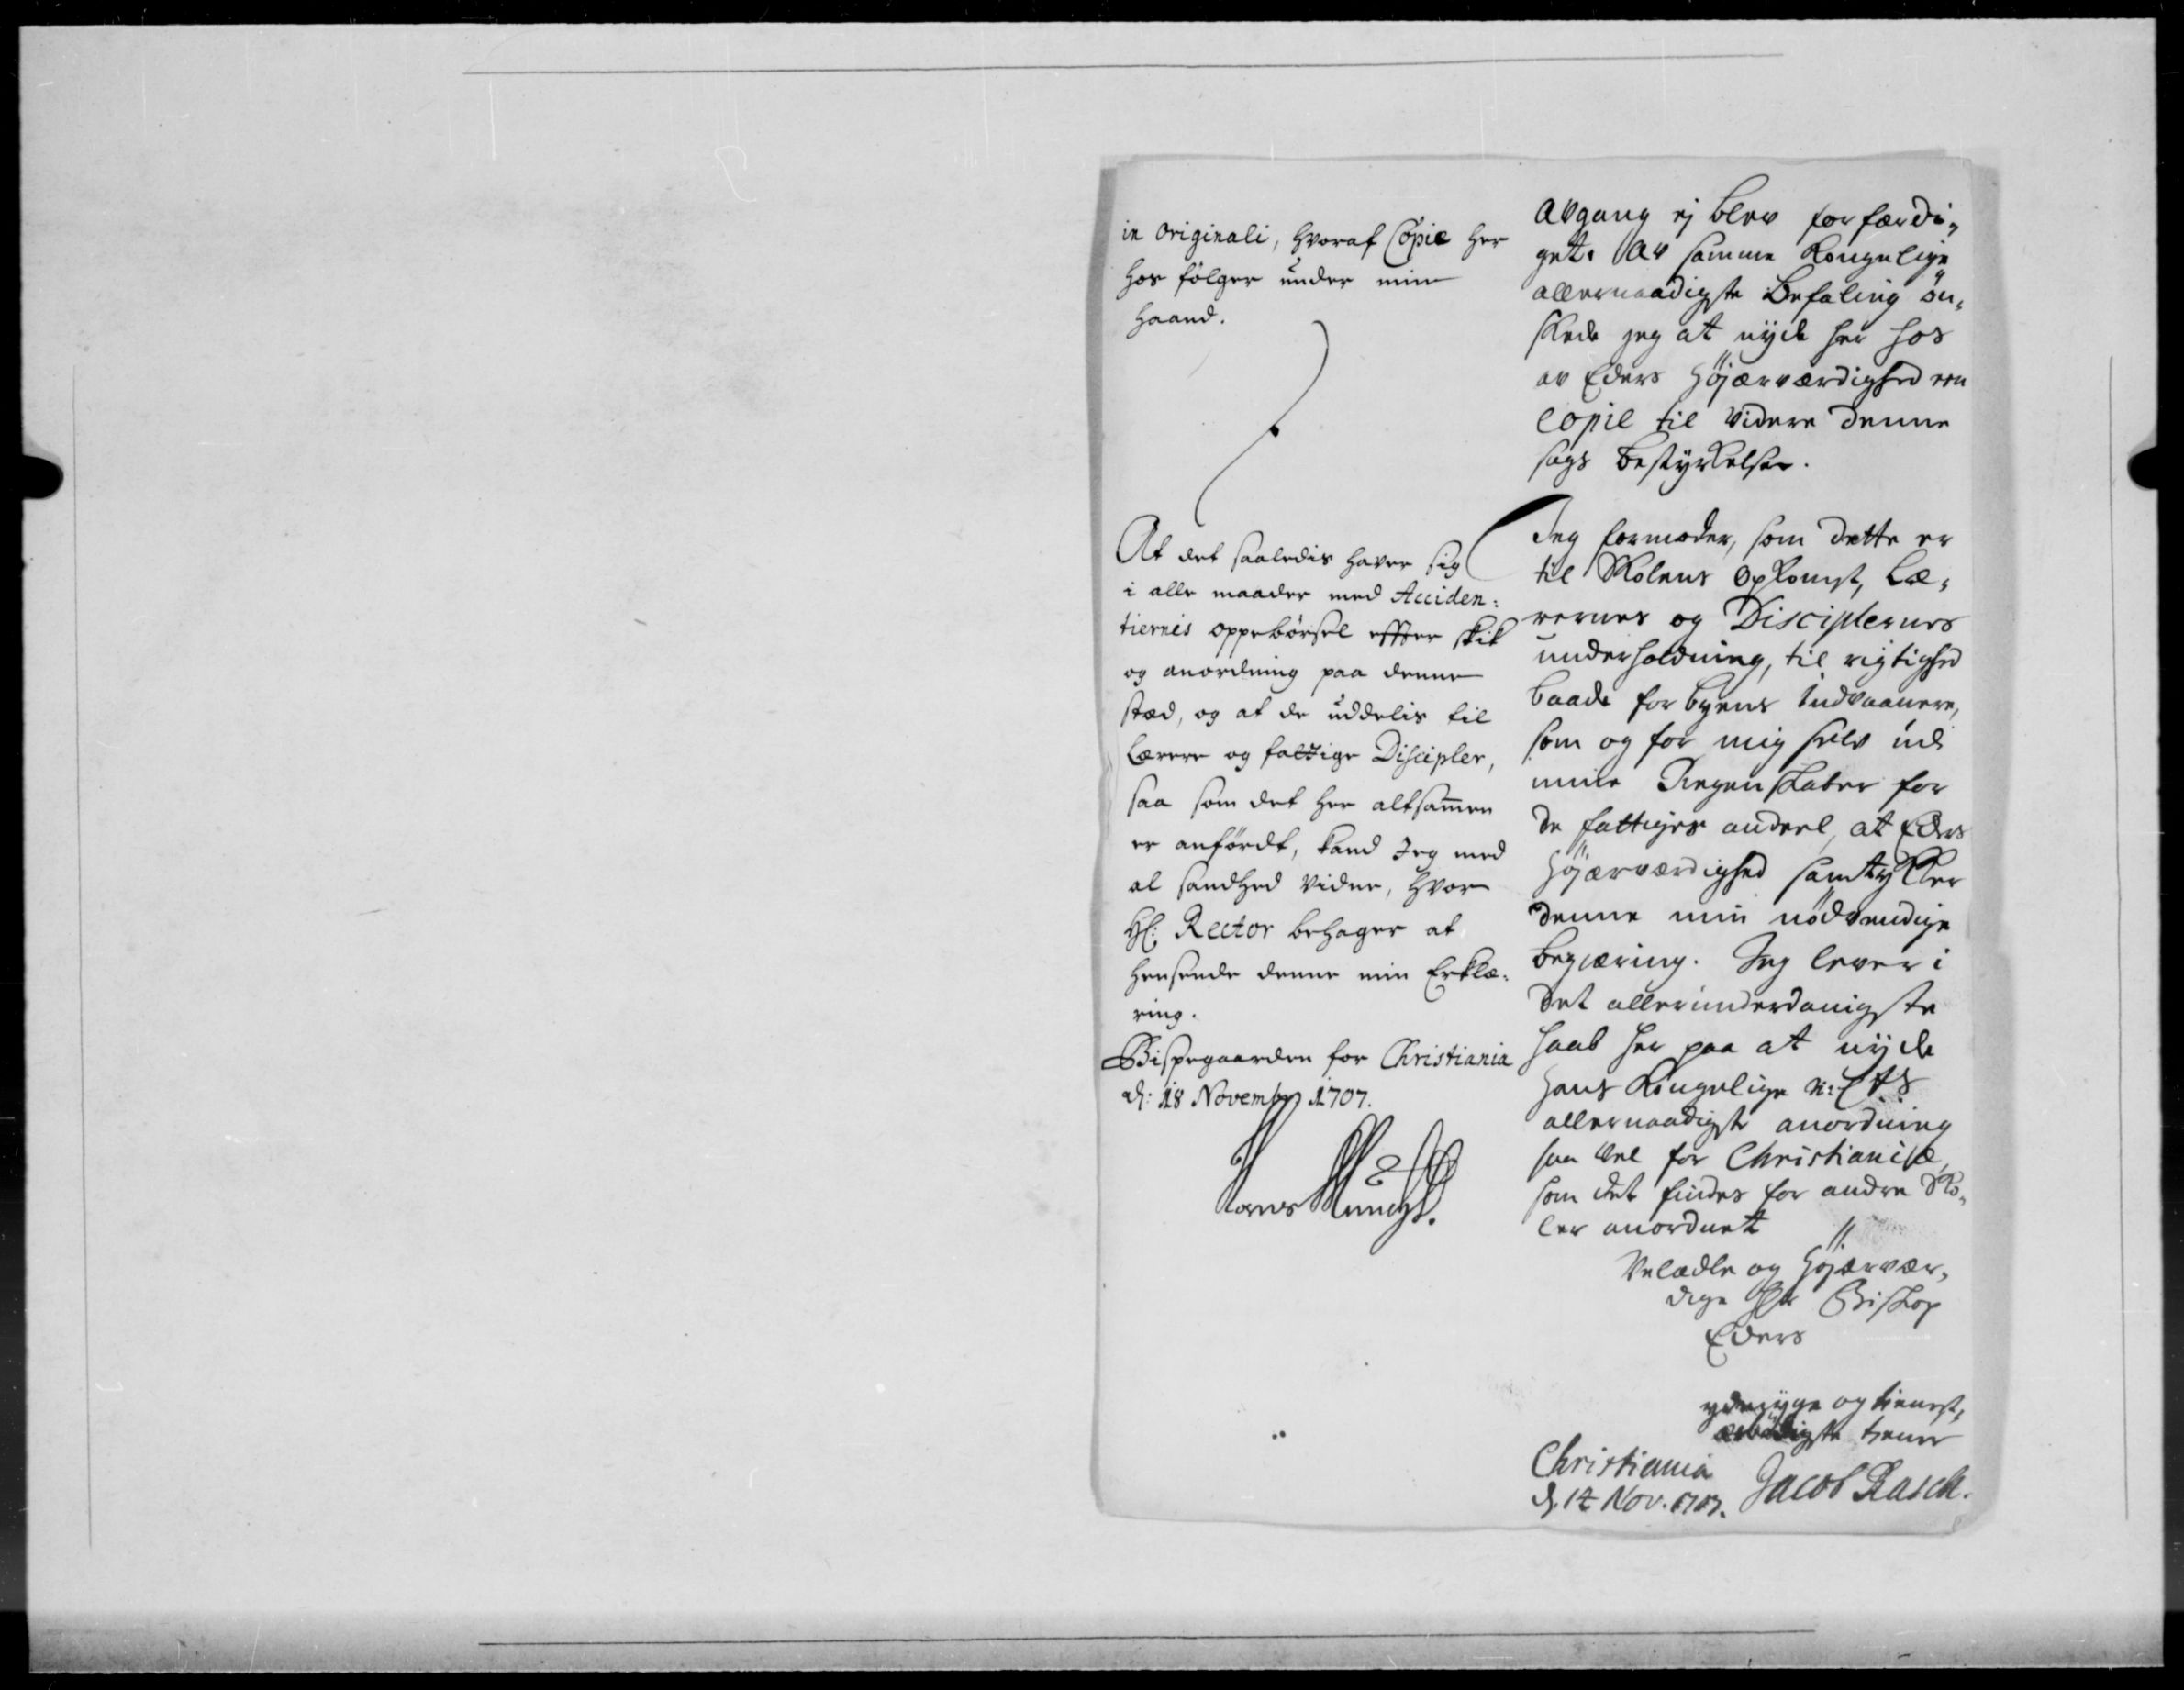 in originali, hvoraf Copie her
hos følger under min
haand.
At det saaledis haver sig
i alle maader med Acciden:
tiernis oppebørsel effter skik
og anordning paa denne
stæd, og at de uddelis til
Lærere og fattige Discipler,
saa som det her altsammen
er anført, kand Jeg med
al sandhed vidne, hvor
Hl: Rector behager at
hensende denne min Erklæ:
ring.
Bispegaarden for Christiania
d: 18 Novembr 1707.
Hans Munch.
Avgang ej blev forfærdi,
get. Av samme Kongelige
allernaadigste Befaling øn,
skede jeg at nyde her hos
av Eders Højærværdighed een
copie til videre denne
sags bestyrkelse.
Jeg formoder, som dette er
til Skolens Opkomst, Læ,
rernes og Disciplernes
underholdning, til rigtighed
baade for byens Indvaanere,
som og for mig selv udi
mine Regenskaber for
de fattiges andeel, at Eders
Højærværdighed samtykker
denne min nødvendige
begiæring. Jeg lever i
det allerunderdanigste
haab her paa at nyde
Hans Kongelige M: Ets
allernaadigste anordning
saa vel for Christaniæ,
som det findes for andre Sko,
ler anordnet
Velædle og Højærvær,
dige Hr Biskop
Eders
ydmyge og tienst,
ærbødigste tiener
Christiania
d. 12 Nov. 1707. Jacob Rasch.